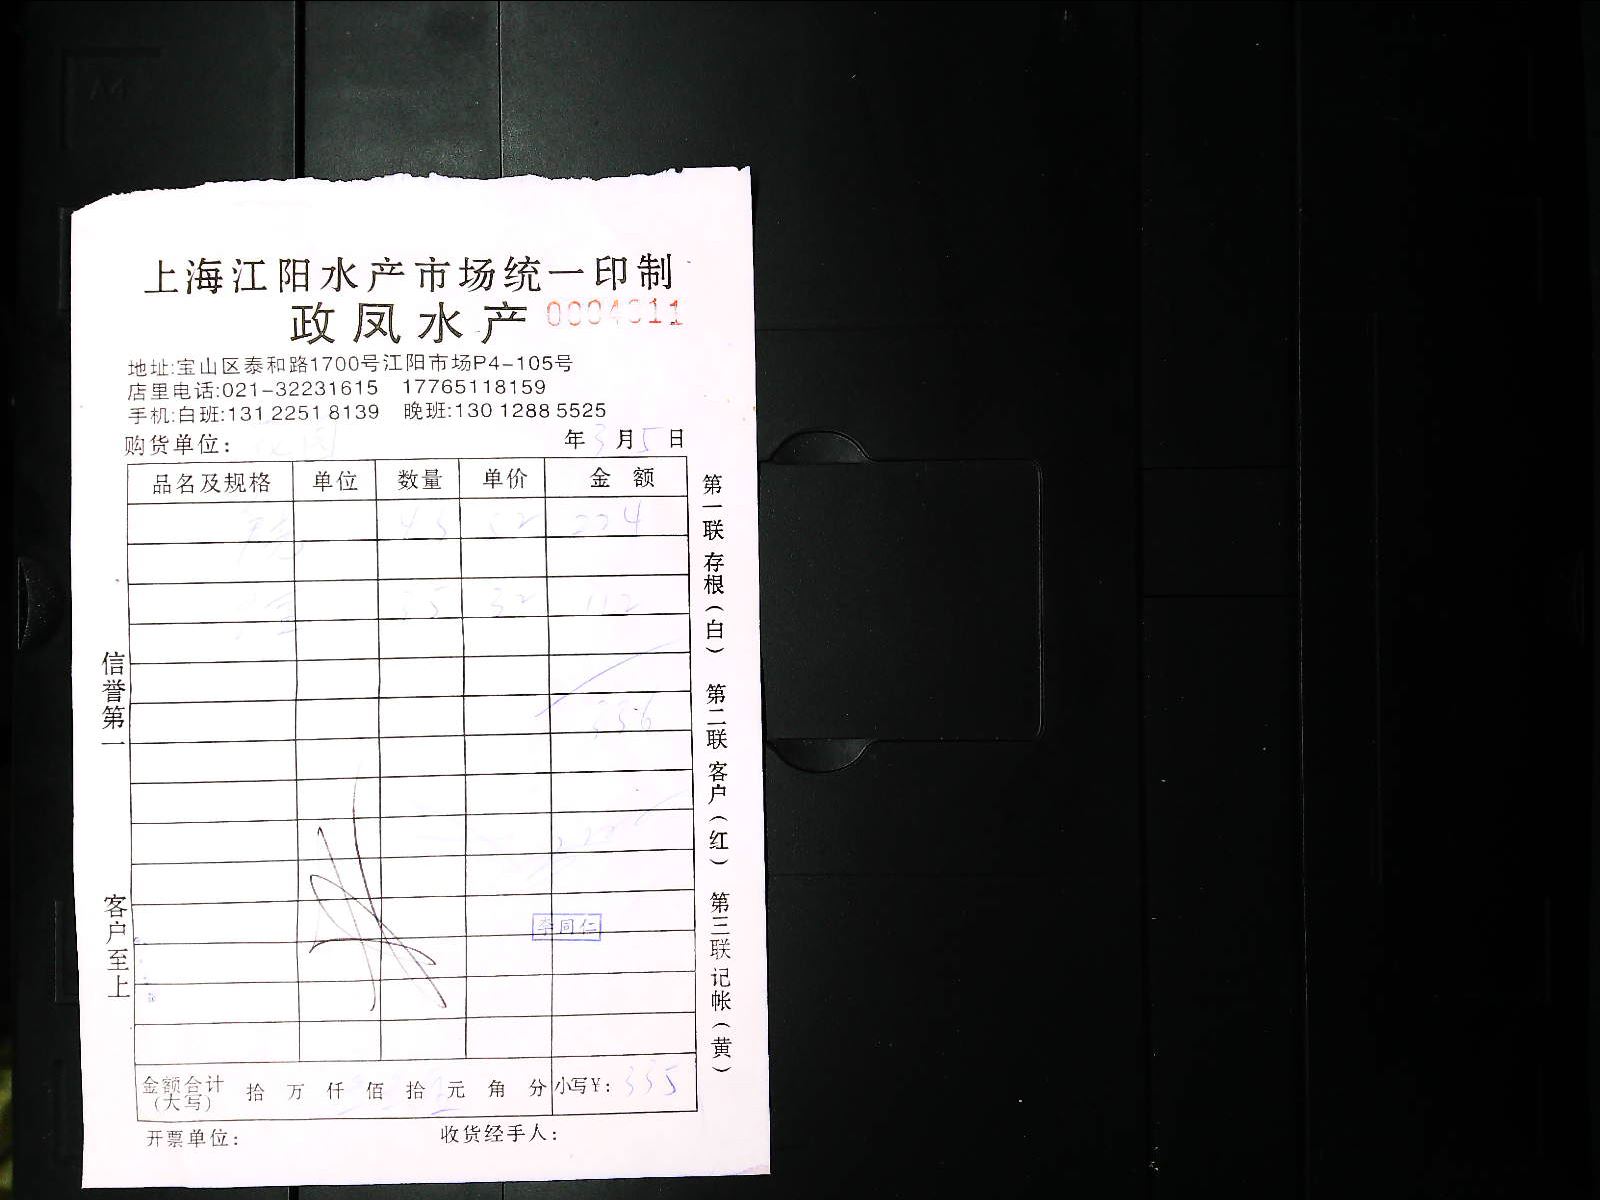 上海江阳水产市场统一印制
政凤水产
地址:宝山区泰和路1700号江阳市场P4-105号
店里电话:021-32231615 17765118159
手机:白班:131 2251 8139 晚班:130 1288 5525
购货单位: 年3月5日
品名及规格 单位 数量 单价 金额
45 52 234
35 32 112
336
李同仁
金额合计(大写) 拾 万 仟 佰 拾 元 角 分 小写¥: 335
开票单位: 收货经手人:
信誉第一 客户至上
第一联存根(白) 第二联客户(红) 第三联记帐(黄)